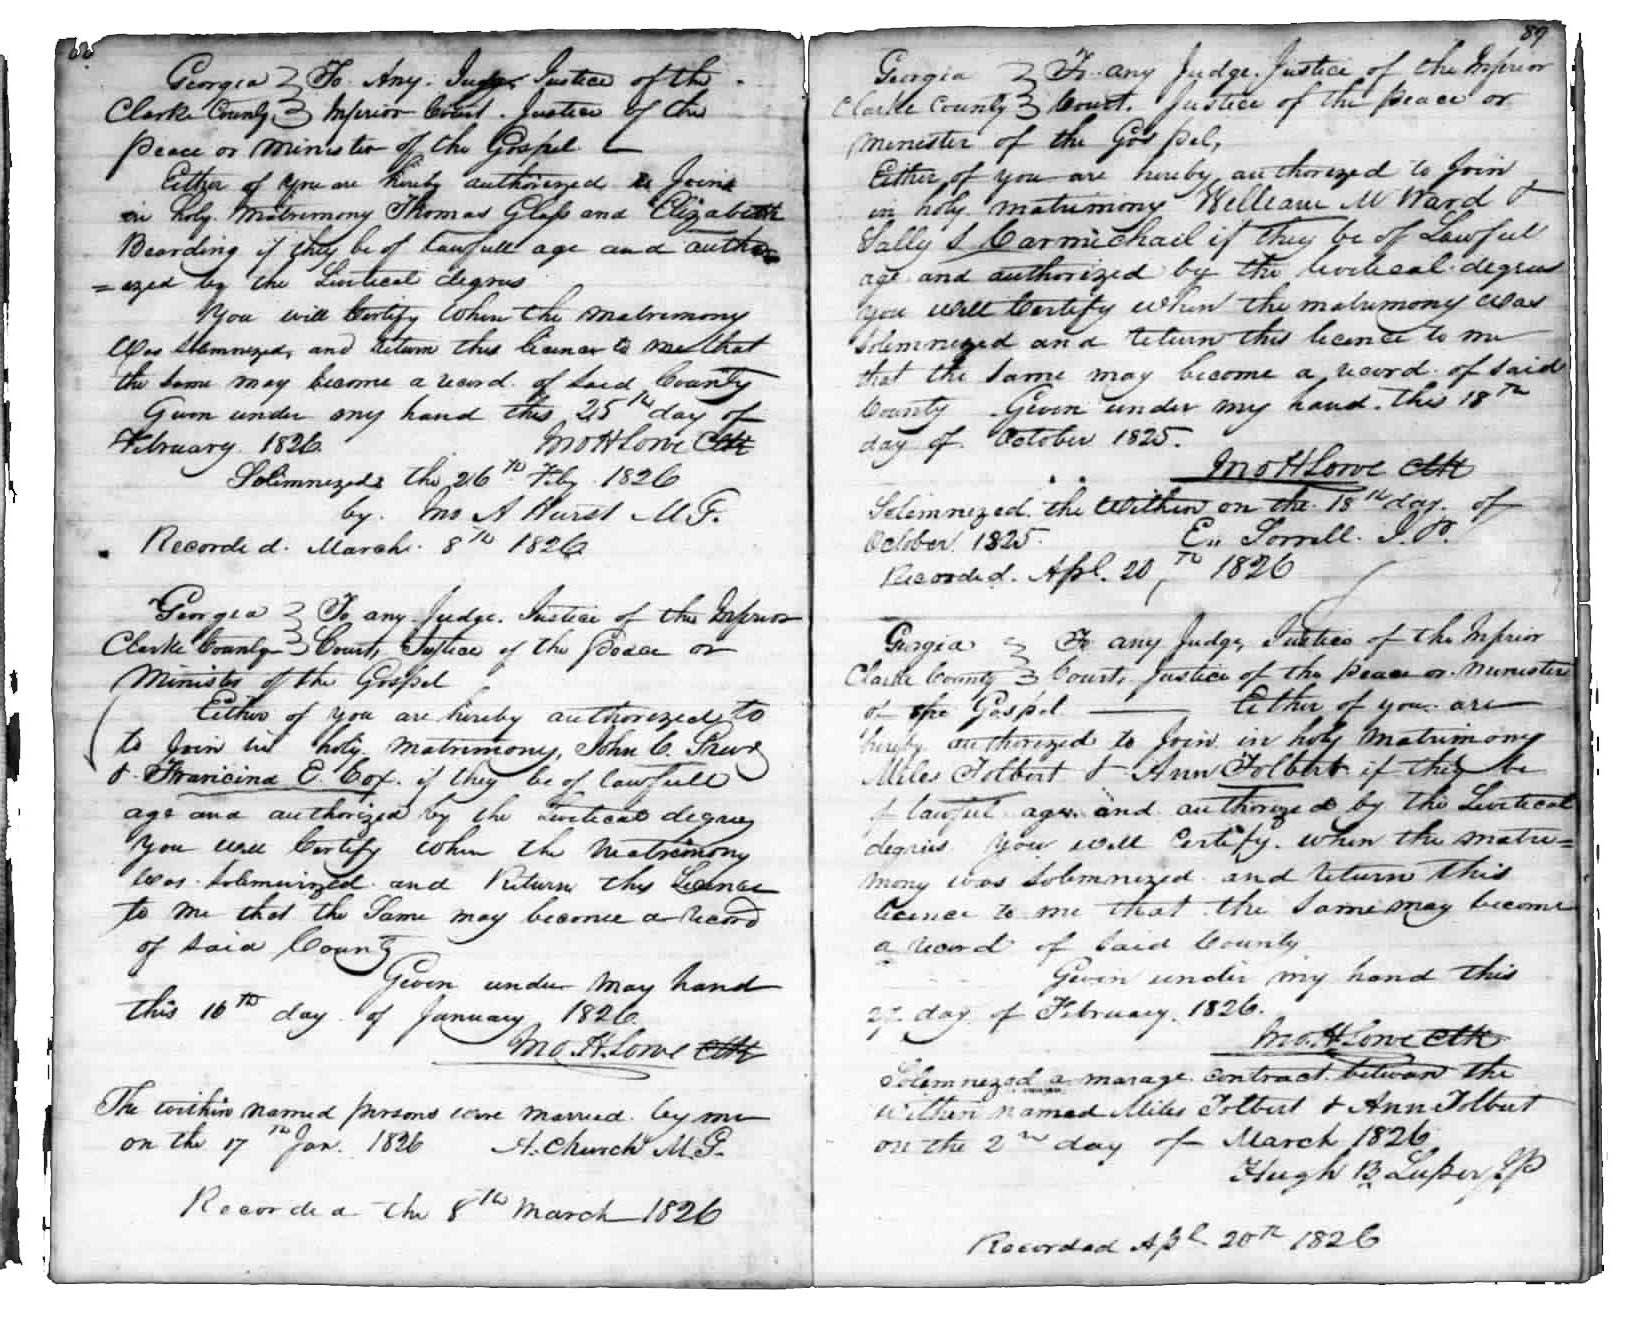 Georgia } To Any. Judge Justice of the
Clarke County. } Inferior Court. Justice of the
Peace or Minister of the Gospel —
Either of you are hereby authorized to Joine
in holy Matrimony Thomas Glass and Elizabeth
Bearding if they be of lawfull age and author
=ized by the Livitical degrees
You will Certify when the matrimony
was Solemnized, and return this licence to me that
the Same may become a record of Said County
Given under my hand this 25th day of
February 1826. Jno H Lowe Clk
Solimnized the 26th Feby. 1826
by. Jno A Hurst M G.
Recorded. March. 8th 1826
Georgia } To any Judge. Justice of the Inferior
Clarke County } Court, Justice of the Peace or
Minister of the Gospel
Either of you are hereby authorized to
to Join in holy Matrimony, John C.
& Francina E. Cox. if they be of lawfull
age and authorized by the Livitical degrees
You will Certify when the Matrimony
was Solemnized and Return this Licence
to me that the Same may become a Record
of Said County
Given under may hand
this 16th day of January 1826.
Jno. H. Lowe Clk
The within named persons were married by me
on the 17th Jan. 1826 A. Church M.G.
Recorded the 8th March 1826
89
Georgia } To any Judge. Justice of the Inferior
Clarke County } Court. Justice of the peace or
Minester of the Gospel,
Either of you are hereby authorized to Join
in holy matrimony William M Ward &
Sally S Carmichail if they be of Lawful
age and authorized by the Livitical degrees
you will Certify when the matrimony was
Solemnized and return this licence to me
that the Same may become a record of Said
County Given under my hand. this 18th
day of October 1825.
Jno H Lowe Clk
Solemnized the within on the 18th day of
October 1825. E. Sorrell. J.P.
Recorded. Apl. 20th 1826
Georgia } To any Judge, Justice of the Inferior
Clarke County } Court, Justice of the peace or Minister
of the Gospel — Either of you are
hereby authorized to Join in holy Matrimony
Miles Tolbert & Ann Tolbert if they be
of lawful age. and authorized by the Livitical
degrees You will Certify when the matri=
mony was Solemnized and return this
licence to me that the Same may become
a record of Said County
Given under my hand this
27 day of February 1826.
Jno. H Lowe Clk
Solemnized a marage contract between the
within named Miles Tolbert & Ann Tolbert
on the 2nd day of March 1826
Hugh B JP
Recorded Apl 20th 1826